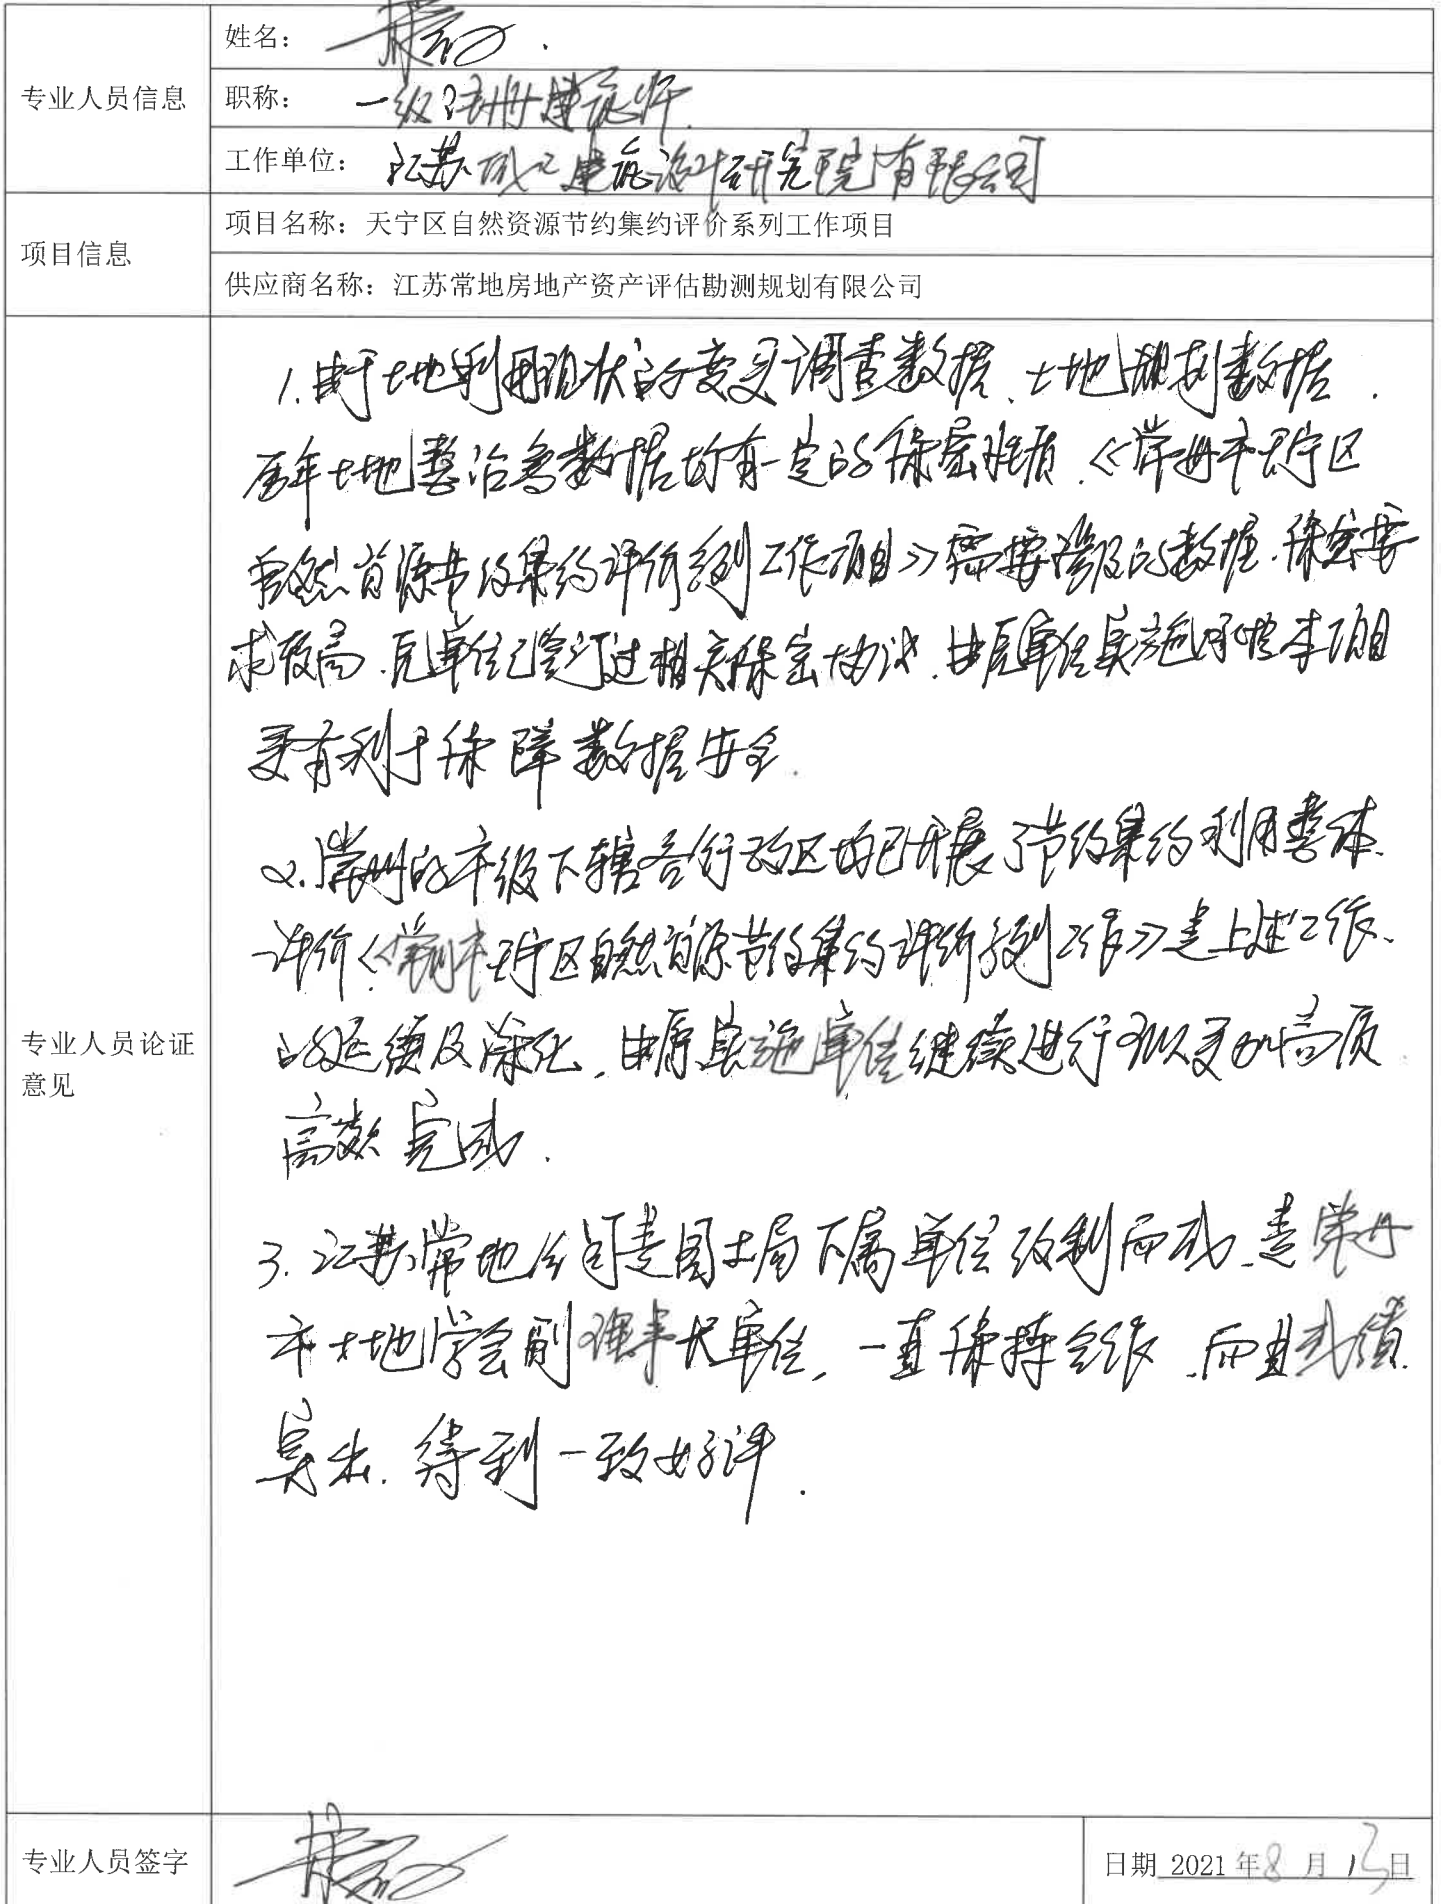 专业人员信息
姓名：
职称： 一级注册建筑师
工作单位： 江苏城乙建筑设计研究院有限公司
项目信息
项目名称：天宁区自然资源节约集约评价系列工作项目
供应商名称：江苏常地房地产资产评估勘测规划有限公司
专业人员论证
意见
1.由于土地利用现状的变更调查数据、土地规划数据、
历年土地整治等数据均有一定的保密性质，《常州市天宁区
自然资源节约集约评价系列工作项目》需要涉及的数据，保密要
求较高，原单位已签订过相关保密协议，由原单位实施承担本项目
更有利于保障数据安全.
2.常州的市级下辖各行政区均已开展了节约集约利用整体
评价《常州市天宁区自然资源节约集约评价系列工作》是上述工作
的延续及深化，由原实施单位继续进行可以更加高质
高效完成.
3.江苏常地公司是国土局下属单位改制而成，是常州
市土地学会副理事长单位，一直保持合作，而且成绩
突出，得到一致好评.
专业人员签字
日期 2021 年 8 月 13 日